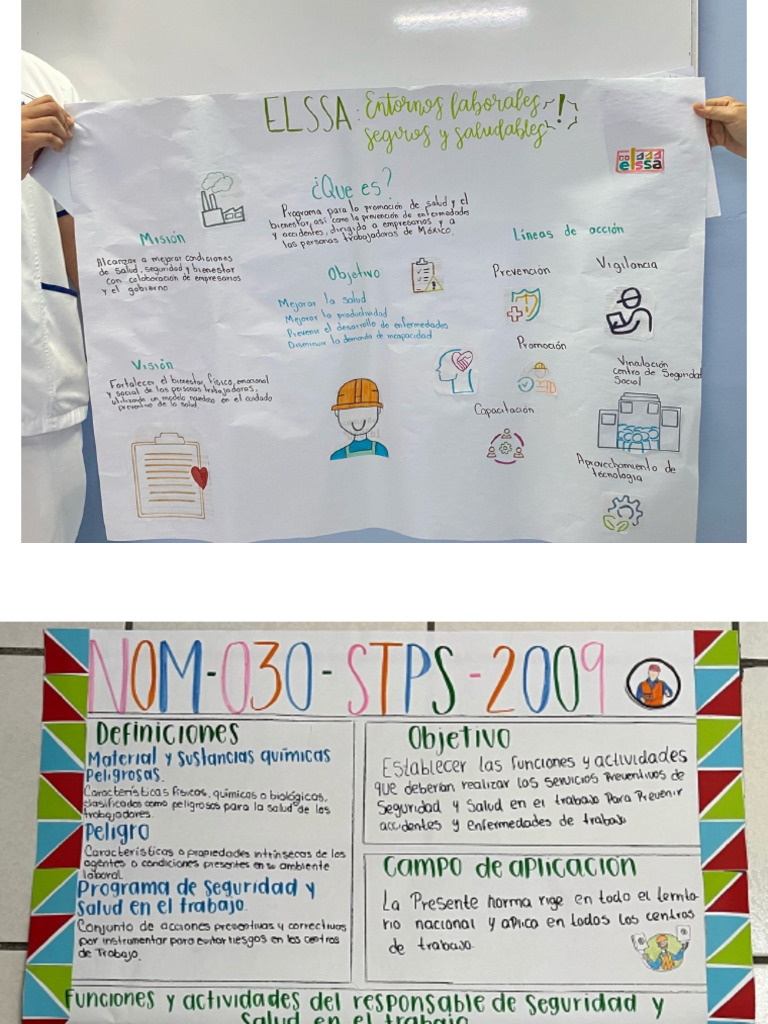 ELSSA: Entornos laborales
seguros y saludables!
elssa
¿Que es?
Programa para la promoción de salud y el
bienestar, así como la prevención de enfermedades
y accidentes, dirigido a empresarios y a
las personas trabajadoras de México.
Misión
Alcanzar a mejorar condiciones
de salud, seguridad y bienestar
con colaboración de empresarios
y el gobierno
Objetivo
Mejorar la salud
Mejorar la productividad
Prevenir el desarrollo de enfermedades
Disminuir la demanda de incapacidad
Visión
Fortalecer el bienestar, físico, emocional
y social de las personas trabajadoras,
utilizando un modelo novedoso en el cuidado
preventivo de la salud
Líneas de acción
Prevención
Vigilancia
Promoción
Vinculación
centro de Seguridad
Social
Capacitación
Aprovechamiento de
tecnología
NOM-030-STPS-2009
Definiciones
Material y Sustancias químicas
Peligrosas.
Características físicas, químicas o biológicas,
clasificados como peligrosos para la salud de los
trabajadores.
Peligro
Características o propiedades intrínsecas de los
agentes o condiciones presentes en su ambiente
laboral.
Programa de Seguridad y
Salud en el trabajo.
Conjunto de acciones preventivas y correctivas
por instrumentar para evitar riesgos en los centros
de Trabajo.
Objetivo
Establecer las funciones y actividades
que deberían realizar los servicios Preventivos de
Seguridad y Salud en el trabajo Para Prevenir
accidentes y enfermedades de trabajo
Campo de aplicación
La Presente norma rige en todo el territo
rio nacional y aplica en todos los centros
de trabajo.
Funciones y actividades del responsable de Seguridad y
Salud en el trabajo